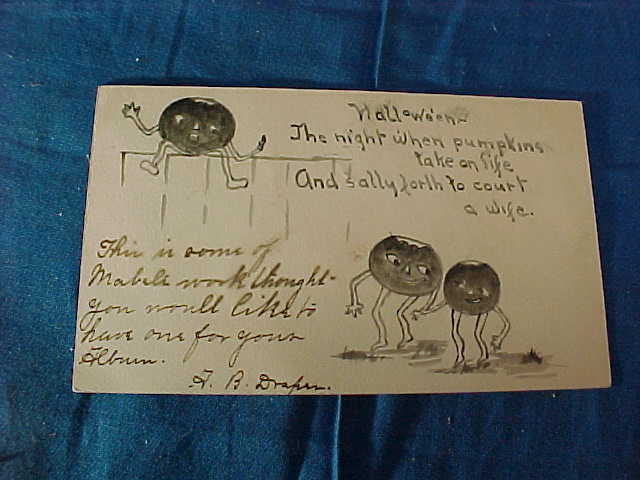 Hallowe'en
The night when pumpkins
take on life
And sally forth to court
a wife.
This is some of
Mabels work thought
you would like to
have one for your
Album.
B. Draper.